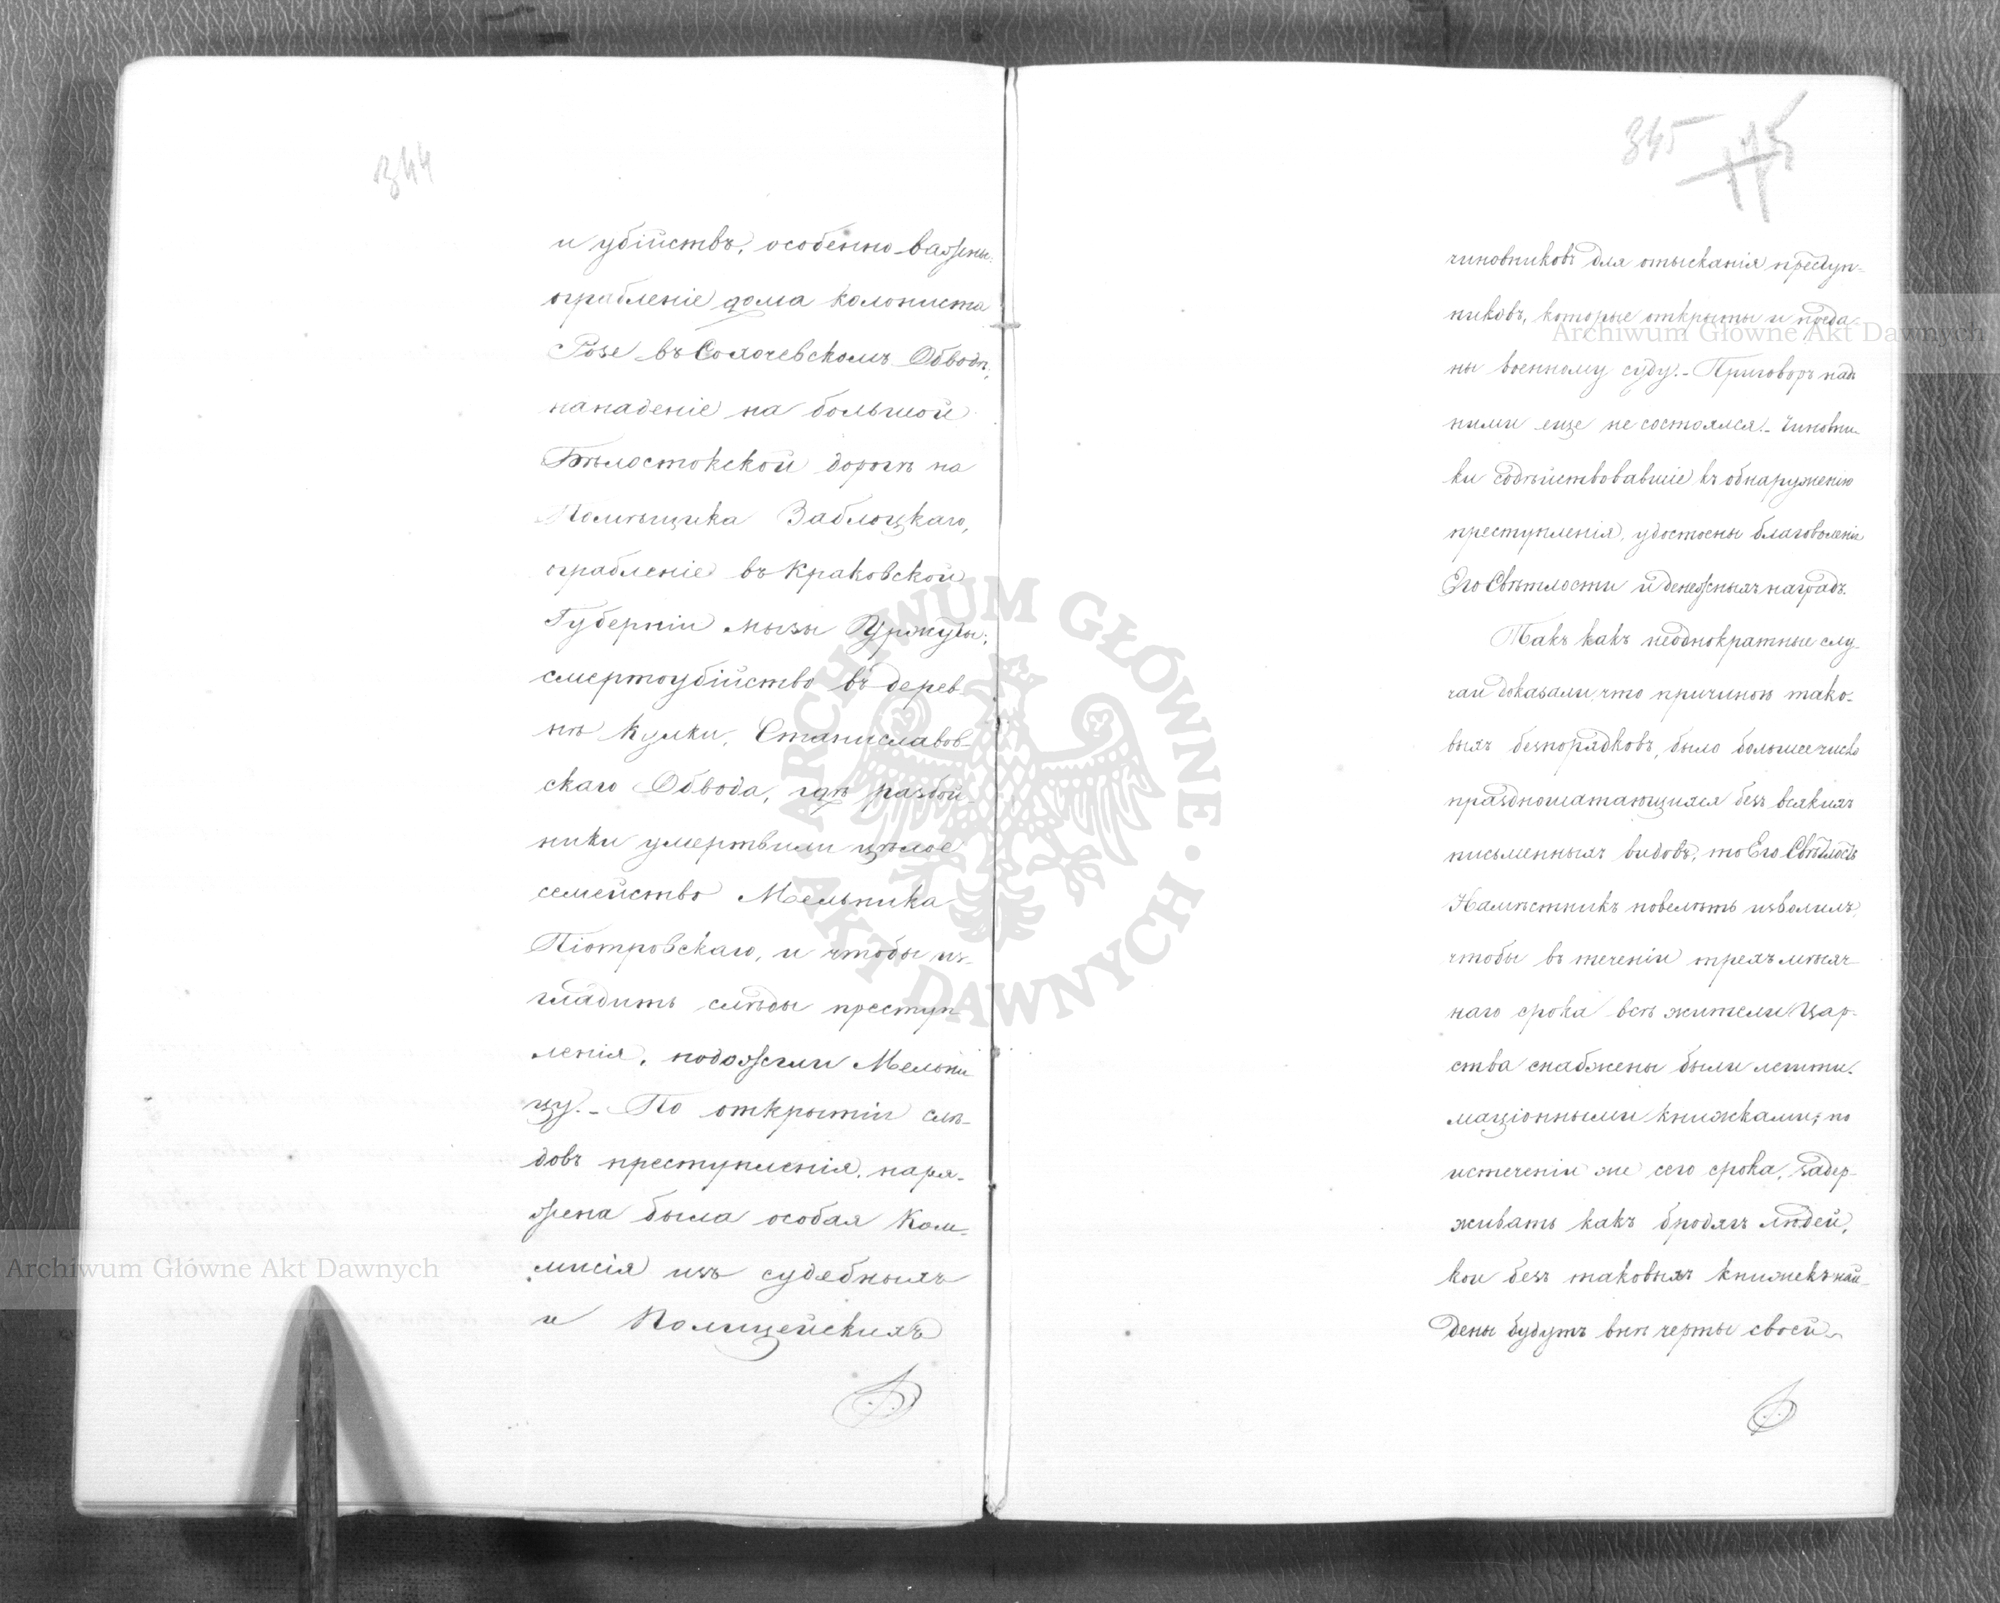 344
и убійствъ, особенно-важны:
ограбленіе дома колониста
Розе въ Сохачевскомъ Обводѣ,
нападеніе на большой
Бѣлостокской дорогѣ на
Помѣщика Заблоцкаго,
ограбленіе въ Краковской
Губерніи мызы
смертоубійство въ дерев-
нѣ Кулки, Станиславов-
скаго Обвода, гдѣ разбой-
ники умертвили цѣлое
семейство Мельника
Піотровскаго, и чтобы из-
гладить слѣды преступ-
ленія, подожгли Мельни
цу.- По открытіи слѣ-
довъ преступленія, наря-
жена была особая Ком-
мисія изъ судебныхъ
и Полицейскихъ
345
175
чиновниковъ для отысканія преступ-
никовъ, которые открыты и преда-
ны военному суду.- Приговоръ надъ
ними еще не состоялся.- Чиновни-
ки содѣйствовавшіе къ обнаруженію
преступленія, удостоены благоволенія
Его Свѣтлости и денежныхъ наградъ.
Такъ какъ неоднократные слу-
чаи доказали, что причиною тако-
выхъ безпорядковъ, было большее число
праздношатающихся безъ всякихъ
письменныхъ видовъ, то Его Свѣтлость
Намѣстникъ повелѣть изволилъ,
чтобы въ теченіи трехъ мѣсяч-
наго срока всѣ жители Цар-
ства снабжены были легити-
маціонными книжками; по
истеченіи же сего срока, задер-
живать какъ бродягъ людей,
кои безъ таковыхъ книжекъ най-
дены будутъ внѣ черты своей
Archiwum Główne Akt Dawnych
Archiwum Główne Akt Dawnych
ARCHIWUM GŁÓWNE · AKT DAWNYCH ·